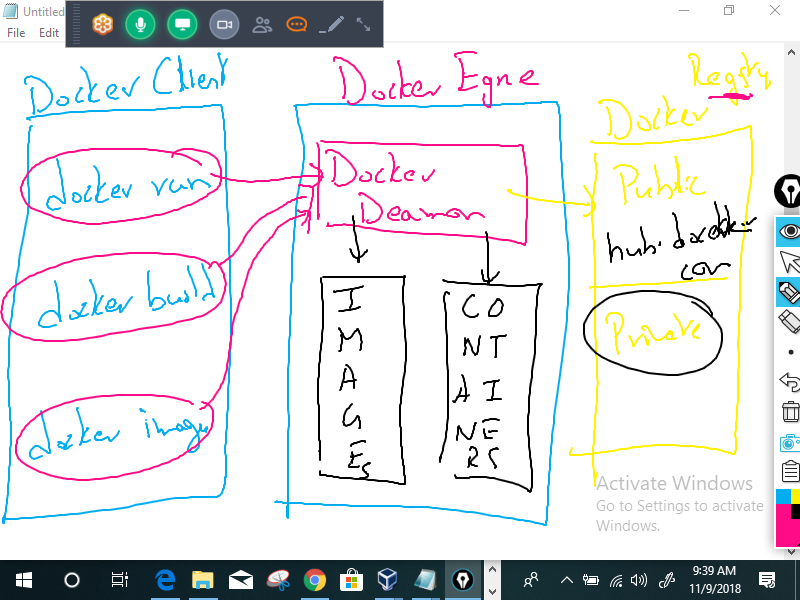 Untitled
File Edit
Docker Client
docker run
docker build
docker image
Docker Egne
Docker
Deamon
IMAGES
CO
NT
AI
NE
RS
Registry
Docker
Public
hub.docker
com
Private
Activate Windows
Go to Settings to activate
Windows.
9:39 AM
11/9/2018